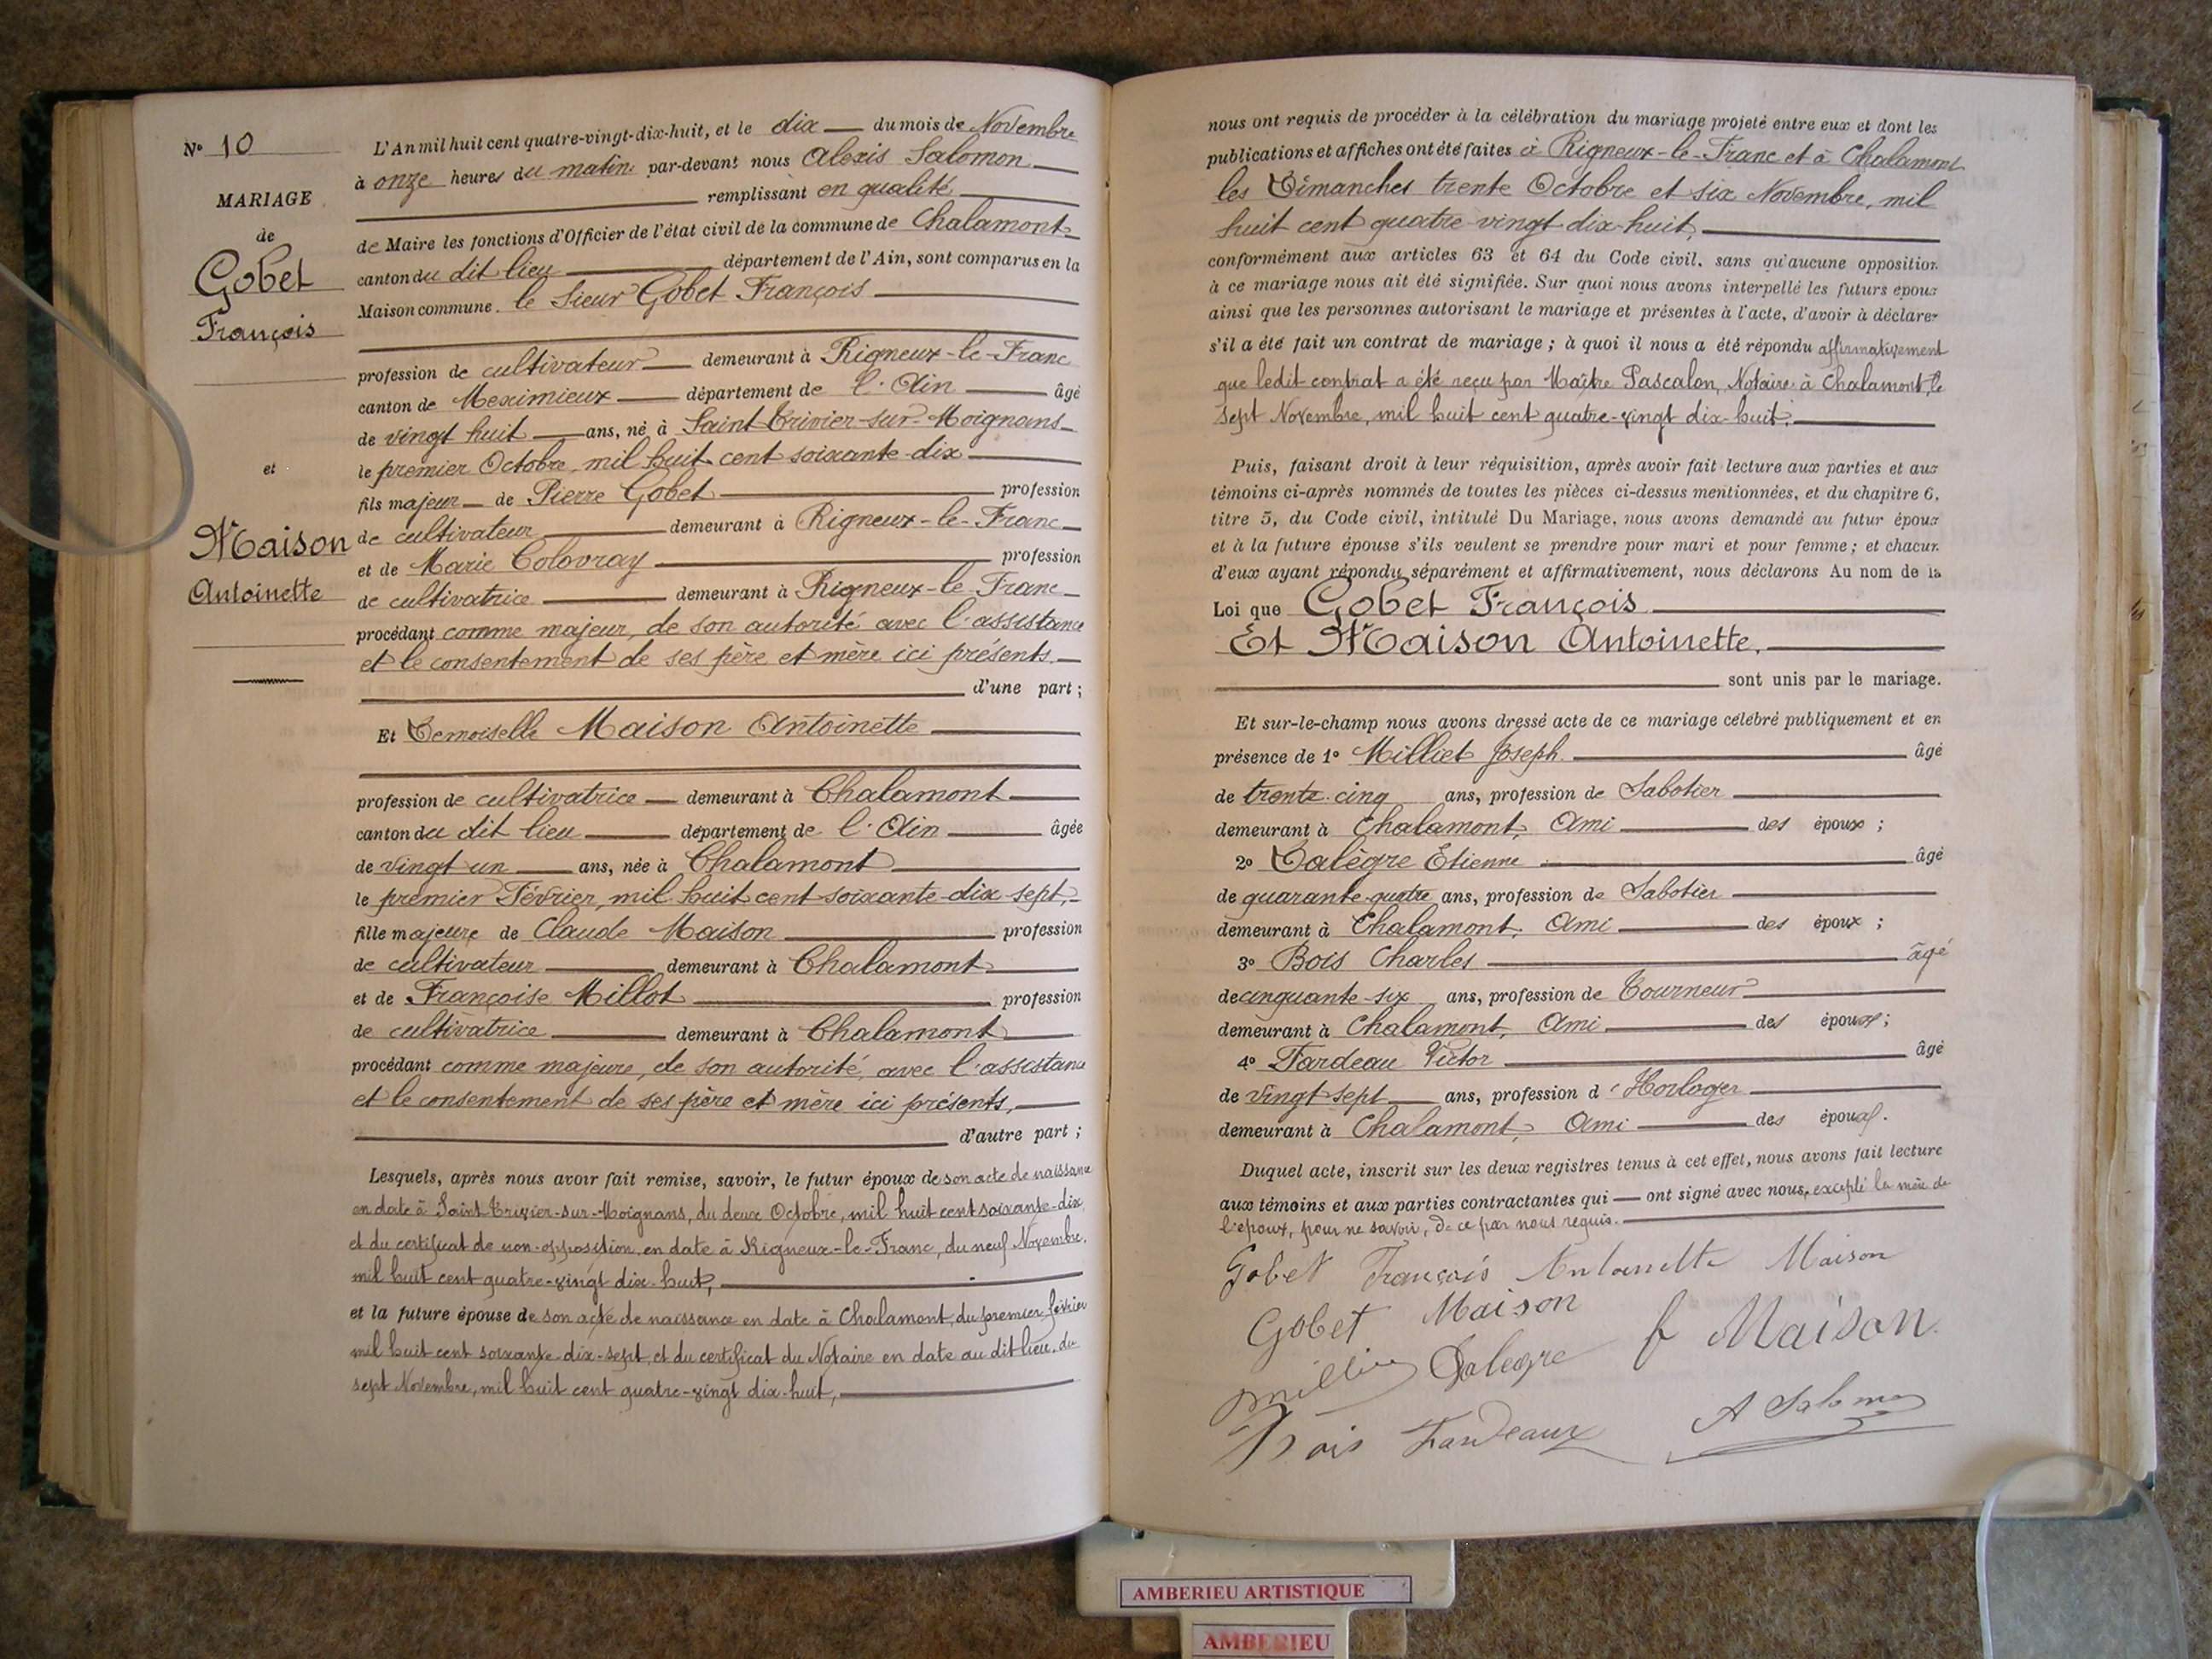 N° 10
MARIAGE
de
Gobet
François
et
Maison
Antoinette
L'An mil huit cent quatre-vingt-dix-huit, et le dix du mois de Novembre
à onze heures du matin par-devant nous Alexis Salomon
remplissant en qualité
de Maire les fonctions d'Officier de l'état civil de la commune de Chalamont
canton du dit lieu département de l'Ain, sont comparus en la
Maison commune. le Sieur Gobet François
profession de cultivateur demeurant à Rigneux-le-Franc
canton de Meximieux département de l'Ain âgé
de vingt huit ans, né à Saint Trivier-sur-Moignans
le premier Octobre mil huit cent soixante-dix
fils majeur de Pierre Gobet profession
de cultivateur demeurant à Rigneux-le-Franc
et de Marie Colovray profession
de cultivatrice demeurant à Rigneux-le-Franc
procédant comme majeur, de son autorité avec l'assistance
et le consentement de ses père et mère ici présents
d'une part ;
Et Demoiselle Maison Antoinette
profession de cultivatrice demeurant à Chalamont
canton du dit lieu département de l'Ain âgée
de vingt un ans, née à Chalamont
le premier Février, mil huit cent soixante-dix sept,
fille majeure de Claude Maison profession
de cultivateur demeurant à Chalamont
et de Françoise Millot profession
de cultivatrice demeurant à Chalamont
procédant comme majeure, de son autorité, avec l'assistance
et le consentement de ses père et mère ici présents,
d'autre part ;
Lesquels, après nous avoir fait remise, savoir, le futur époux de son acte de naissance
en date à Saint Trivier-sur-Moignans, du deux Octobre, mil huit cent soixante-dix
et du certificat de non-opposition en date à Rigneux-le-Franc, du neuf Novembre,
mil huit cent quatre-vingt dix-huit,
et la future épouse de son acte de naissance en date à Chalamont, du premier février
mil huit cent soixante-dix-sept, et du certificat du Notaire en date au dit lieu, du
sept Novembre, mil huit cent quatre-vingt dix-huit,
nous ont requis de procéder à la célébration du mariage projeté entre eux et dont les
publications et affiches ont été faites à Rigneux-le-Franc et à Chalamont
les Dimanches trente Octobre et six Novembre, mil
huit cent quatre-vingt dix-huit,
conformément aux articles 63 et 64 du Code civil, sans qu'aucune opposition
à ce mariage nous ait été signifiée. Sur quoi nous avons interpellé les futurs époux
ainsi que les personnes autorisant le mariage et présentes à l'acte, d'avoir à déclarer
s'il a été fait un contrat de mariage ; à quoi il nous a été répondu affirmativement
que ledit contrat a été reçu par Maître Pascalon, Notaire à Chalamont, le
sept Novembre, mil huit cent quatre-vingt dix-huit.
Puis, faisant droit à leur réquisition, après avoir fait lecture aux parties et aux
témoins ci-après nommés de toutes les pièces ci-dessus mentionnées, et du chapitre 6,
titre 5, du Code civil, intitulé Du Mariage, nous avons demandé au futur époux
et à la future épouse s'ils veulent se prendre pour mari et pour femme ; et chacun
d'eux ayant répondu séparément et affirmativement, nous déclarons Au nom de la
Loi que Gobet François
Et Maison Antoinette,
sont unis par le mariage.
Et sur-le-champ nous avons dressé acte de ce mariage célébré publiquement et en
présence de 1° Milliet Joseph âgé
de trente-cinq ans, profession de Sabotier
demeurant à Chalamont, Ami des époux ;
2° Dalègre Etienne âgé
de quarante-quatre ans, profession de Sabotier
demeurant à Chalamont, Ami des époux ;
3° Bois Charles âgé
de cinquante-six ans, profession de Tourneur
demeurant à Chalamont, Ami des époux ;
4° Fardeau Victor âgé
de vingt sept ans, profession d'Horloger
demeurant à Chalamont, Ami des époux.
Duquel acte, inscrit sur les deux registres tenus à cet effet, nous avons fait lecture
aux témoins et aux parties contractantes qui ont signé avec nous, excepté la mère de
l'époux, pour ne savoir, de ce par nous requis.
Gobet François Antoinette Maison
Gobet Maison f Maison
Dalegre
Bois Fardeaux A Salomon
AMBERIEU ARTISTIQUE
AMBERIEU